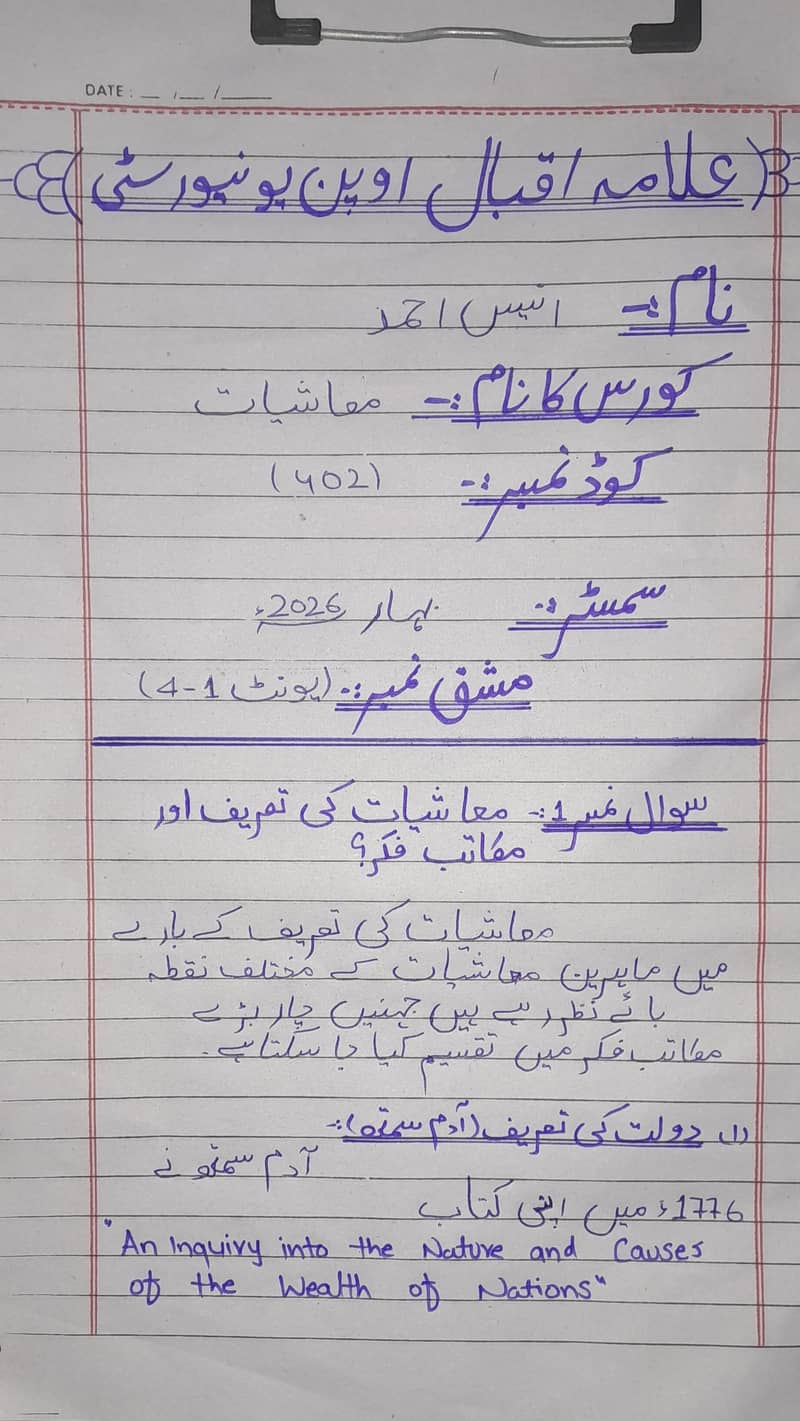 DATE: __/__/____
علامہ اقبال اوپن یونیورسٹی
نام:- انیس احمد
کورس کا نام:- معاشیات
کوڈ نمبر:- (402)
سمسٹر:- بہار 2026ء
مشق نمبر:- (یونٹ 1-4)
سوال نمبر 1:- معاشیات کی تعریف اور
مکاتب فکر؟
معاشیات کی تعریف کے بارے
میں ماہرین معاشیات کے مختلف نقطہ
ہائے نظر رہے ہیں جہنیں چار بڑے
مکاتب فکر میں تقسیم کیا جا سکتا ہے۔
(1) دولت کی تعریف (آدم سمتھ):-
آدم سمتھ نے
1776ء میں اپنی کتاب
"An Inquiry into the Nature and Causes
of the Wealth of Nations"